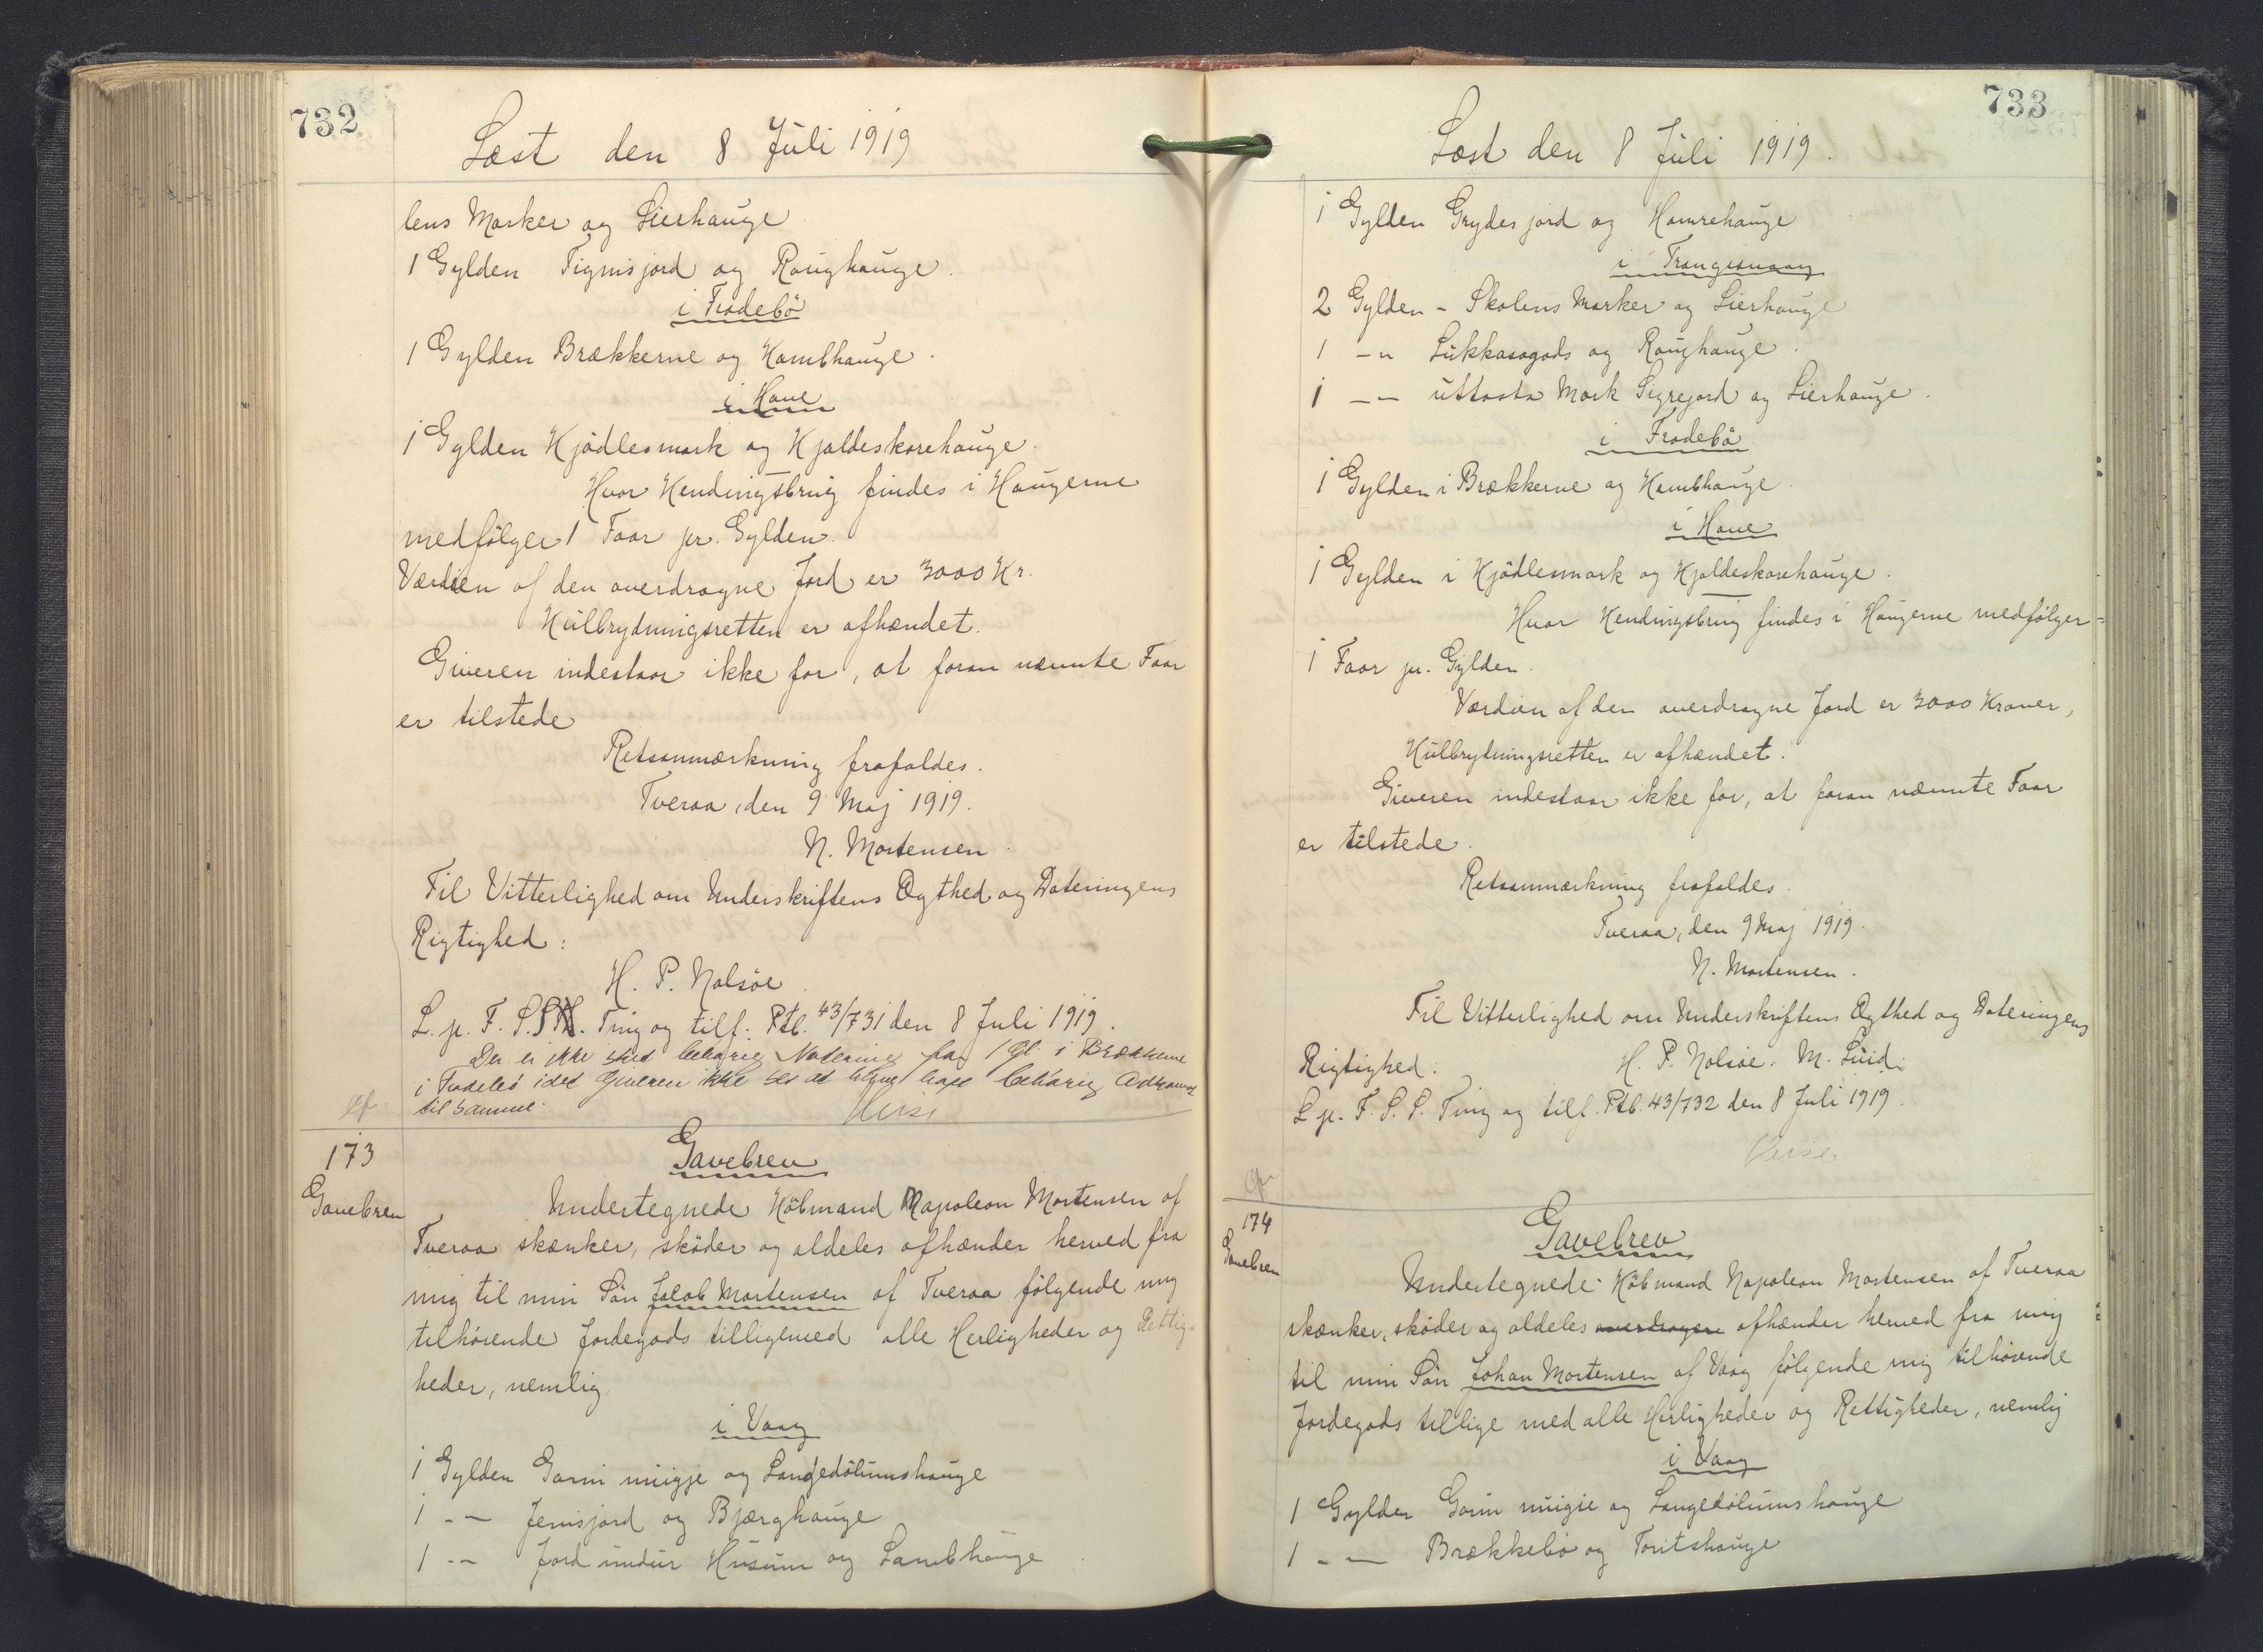 732
Læst den 8 Juli 1919
lens Marker og Lierhauge
1 Gylden Tignisjord og Roughauge.
i Frodebö
1 Gylden Brækkerne og Kambhauge.
i Hove
1 Gylden Kjödlesmark og Kjoldeskorehauge.
Hvor Kendingsbrug findes i Haugerne
medfölger 1 Faar pr. Gylden.
Værdien af den overdragne Jord er 3000 Kr.
Kulbrydningsretten er afhændet.
Giveren indestaar ikke for, at foran nævnte Faar
er tilstede
Retsanmærkning frafaldes.
Tveraa, den 9 Maj 1919.
N. Mortensen.
Til Vitterlighed om Underskriftens Ægthed og Dateringens
Rigtighed:
H. P. Nolsöe.
L. p. F. S. S. Ting og tilf. Ptb. 43/731 den 8 Juli 1919.
Der er ikke sket behörig Notering for 1 Gl. i Brækkerne
i Frodebö idet Giveren ikke ses at have behörig Adkomst
til samme.
173
Gavebrev
Gavebrev
Undertegnede Köbmand Napoleon Mortensen af
Tveraa skænker, sköder og aldeles afhænder herved fra
mig til min Sön Jacob Mortensen af Tveraa fölgende mig
tilhörende Jordegods tilligemed alle Herligheder og Rettig=
heder, nemlig
i Vaag
1 Gylden Garni muigje og Langedölumshauge
1 -"- Jenisjord og Bjærghauge
1 -"- Jord undur Husum og Lambhauge.
733
Læst den 8 Juli 1919.
1 Gylden Grydesjord og Homrehauge
i Trangisvaag
2 Gylden - Skolens Marker og Lierhauge
1 -"- Lukkasogods og Roughauge.
1 -"- uttasta Mork Sigrejord og Lierhauge.
i Frodebö
1 Gylden i Brækkerne og Kambhauge.
i Hove
1 Gylden i Kjödlesmark og Kjoldeskorehauge.
Hvor Kendingsbrug findes i Haugerne medfölger=
1 Faar pr. Gylden.
Værdien af den overdragne Jord er 3000 Kroner,
Kulbrydningsretten er afhændet.
Giveren indestaar ikke for, at foran nævnte Faar
er tilstede.
Retsanmærkning frafaldes.
Tveraa, den 9 Maj 1919.
N. Mortensen.
Til Vitterlighed om Underskriftens Ægthed og Dateringens
Rigtighed. H. P. Nolsöe. M. Luid.
L. p. F. S. S. Ting og tilf. Ptb. 43/732 den 8 Juli 1919.
174
Gavebrev
Gavebrev
Undertegnede Köbmand Napoleon Mortensen af Tveraa
skænker, sköder og aldeles overdragere afhænder herved fra mig
til min Sön Johan Mortensen af Vaag fölgende mig tilhörende
Jordegods tillige med alle Herligheder og Rettigheder, nemlig
i Vaag
1 Gylden Garni muigje og Langedölumshauge
1 -"- Brækkebö og Toritshauge